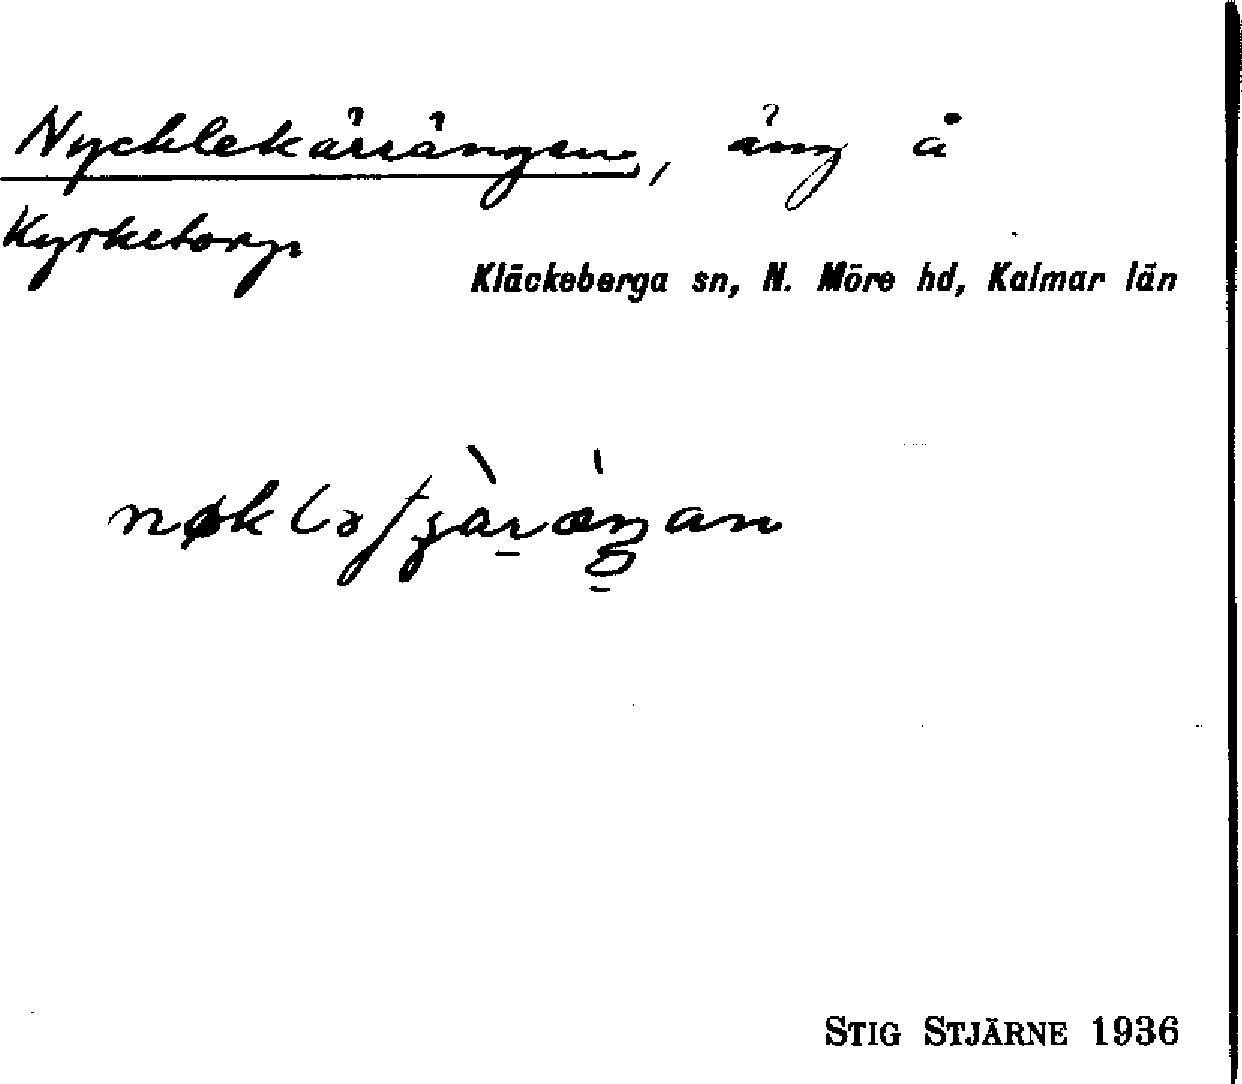 Nycklekärrängen, äng å
Kyrketorp
Kläckeberga sn, N. Möre hd, Kalmar län
STIG STJÄRNE 1936